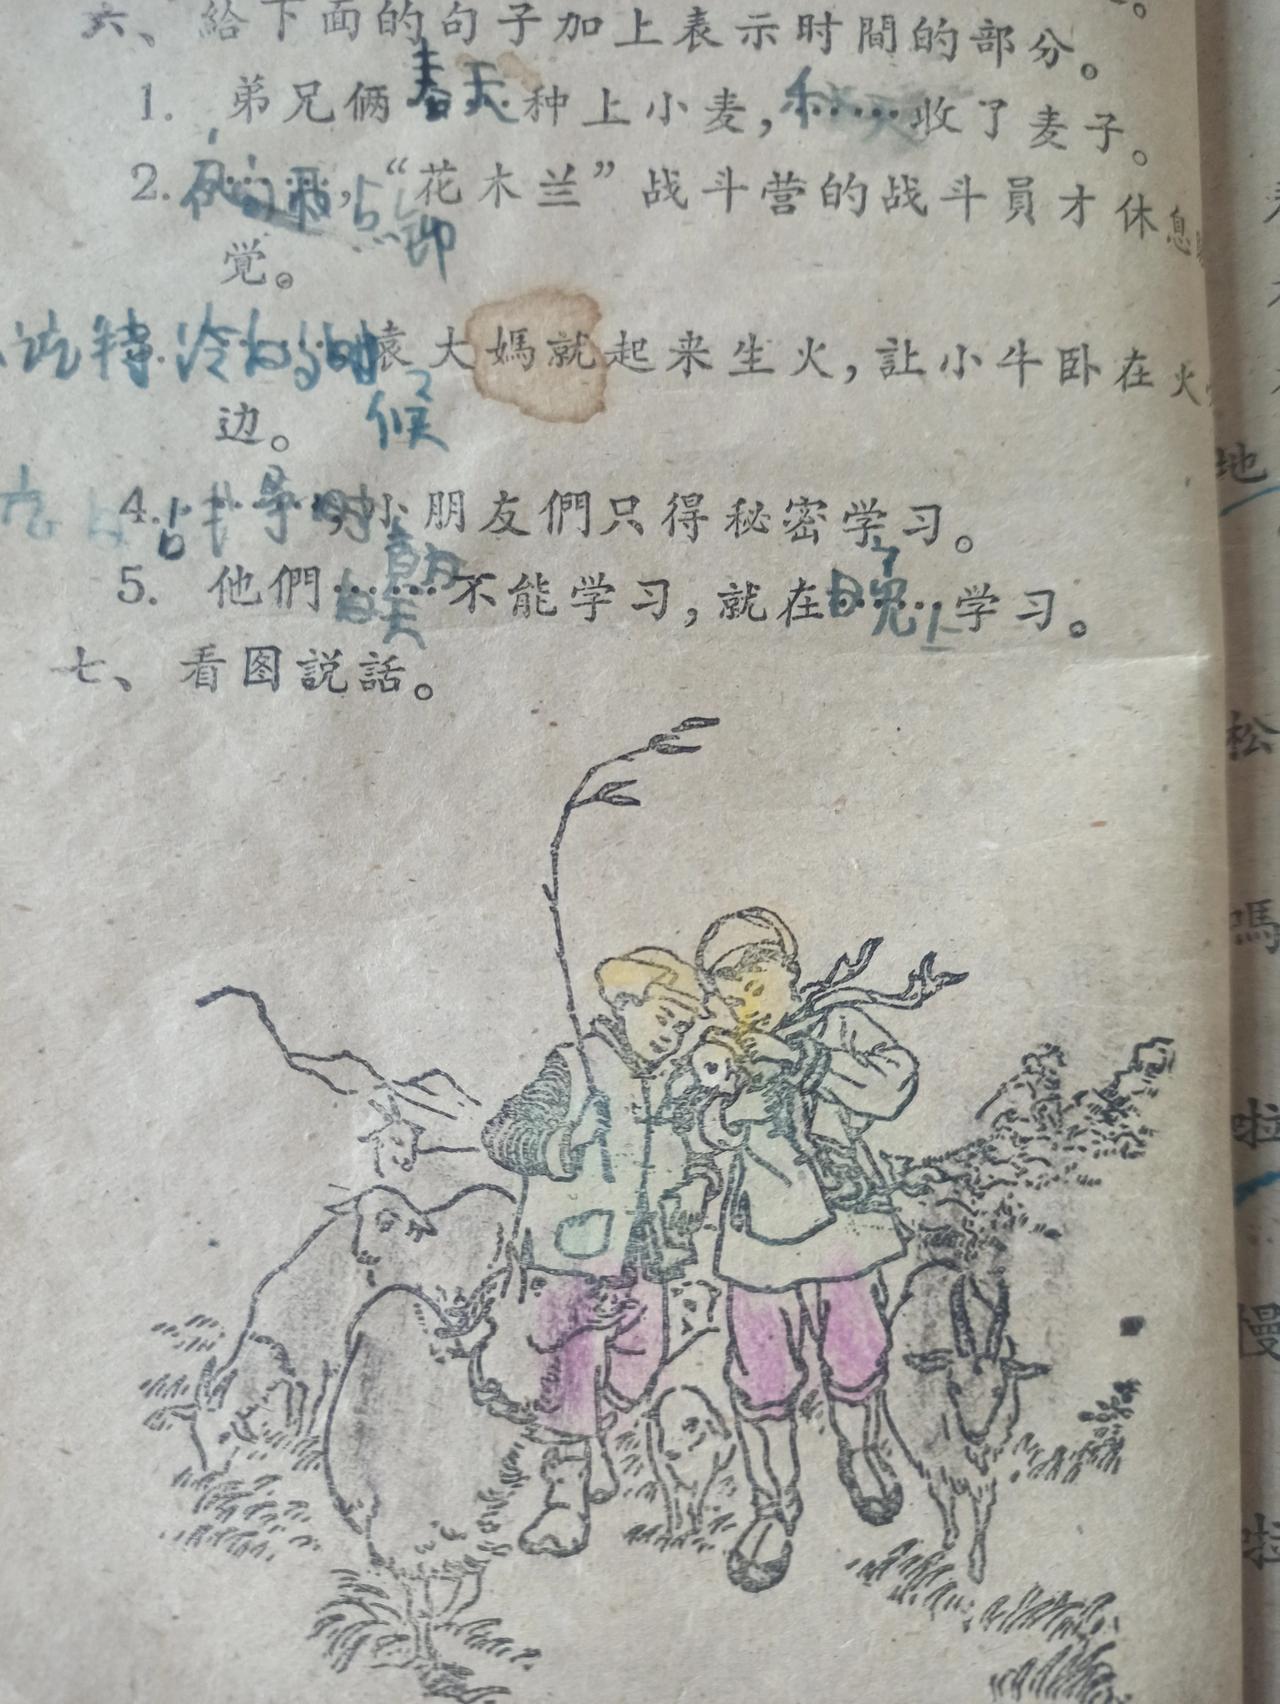 六、給下面的句子加上表示时間的部分。
1. 弟兄俩春天种上小麦，秋天收了麦子。
2. ，“花木兰”战斗营的战斗員才休息
点钟
觉。
冷的时袁大媽就起来生火，讓小牛卧在火
候
边。
4. 战争时小朋友們只得秘密学习。
5. 他們白天不能学习，就在晚上学习。
七、看图說話。
地
松
嗎
啦
慢